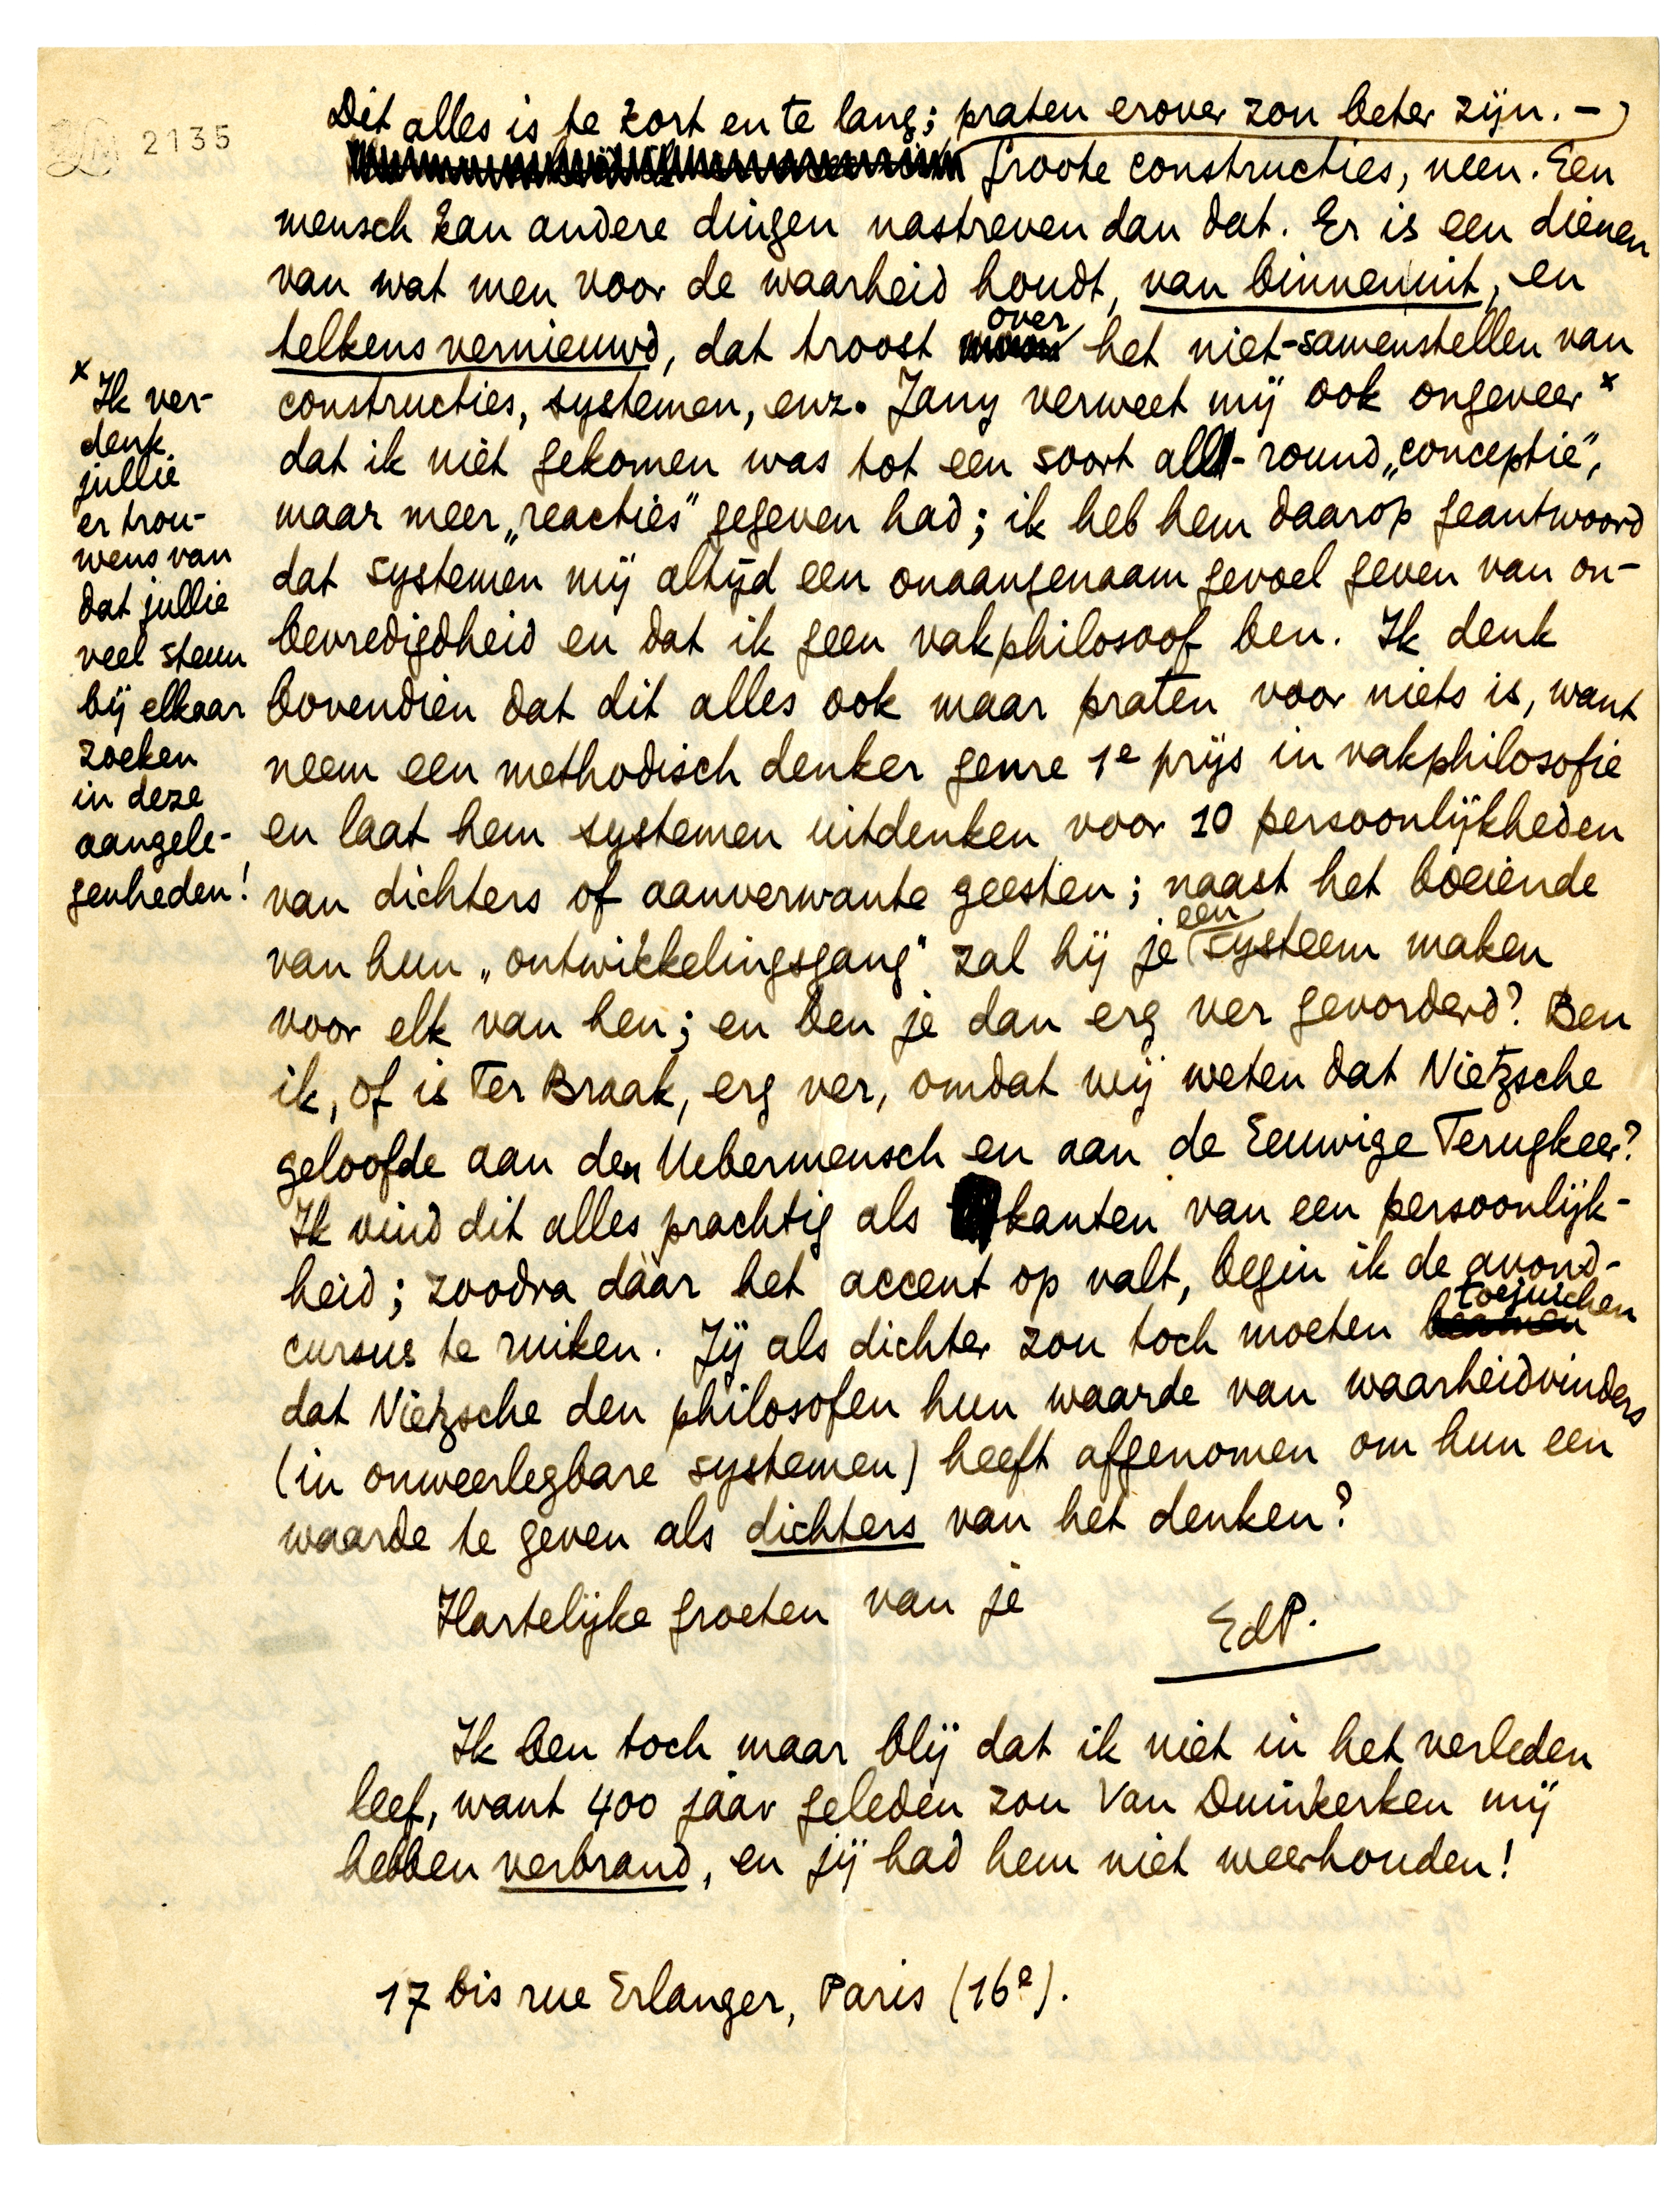 2135
Dit alles is te kort en te lang; praten erover zou beter zijn. –
Groote constructies, neen. Een
mensch kan andere dingen nastreven dan dat. Er is een dienen
van wat men voor de waarheid houdt, van binnenuit, en
telkens vernieuwd, dat troost over het niet-samenstellen van
constructies, systemen, enz. Jany verweet mij ook ongeveer x
dat ik niet gekomen was tot een soort all-round „conceptie",
maar meer „reacties" gegeven had; ik heb hem daarop geantwoord
dat systemen mij altijd een onaangenaam gevoel geven van on-
bevredigdheid en dat ik geen vakphilosoof ben. Ik denk
bovendien dat dit alles ook maar praten voor niets is, want
neem een methodisch denker genre 1e prijs in vakphilosofie
en laat hem systemen uitdenken voor 10 persoonlijkheden
van dichters of aanverwante geesten; naast het boeiende
van hun „ontwikkelingsgang" zal hij je een systeem maken
voor elk van hen; en ben je dan erg ver gevorderd? Ben
ik, of is Ter Braak, erg ver, omdat wij weten dat Nietzsche
geloofde aan den Uebermensch en aan de Eeuwige Terugkeer?
Ik vind dit alles prachtig als kanten van een persoonlijk-
heid; zoodra dáár het accent op valt, begin ik de avond-
cursus te ruiken. Jij als dichter zou toch moeten toejuichen
dat Nietzsche den philosofen hun waarde van waarheidvinders
(in onweerlegbare systemen) heeft afgenomen om hun een
waarde te geven als dichters van het denken?
Hartelijke groeten van je
EdP.
Ik ben toch maar blij dat ik niet in het verleden
leef, want 400 jaar geleden zou Van Duinkerken mij
hebben verbrand, en jij had hem niet weerhouden!
17 bis rue Erlanger, Paris (16e).
x Ik ver-
denk
jullie
er trou-
wens van
dat jullie
veel steun
bij elkaar
zoeken
in deze
aangele-
genheden!